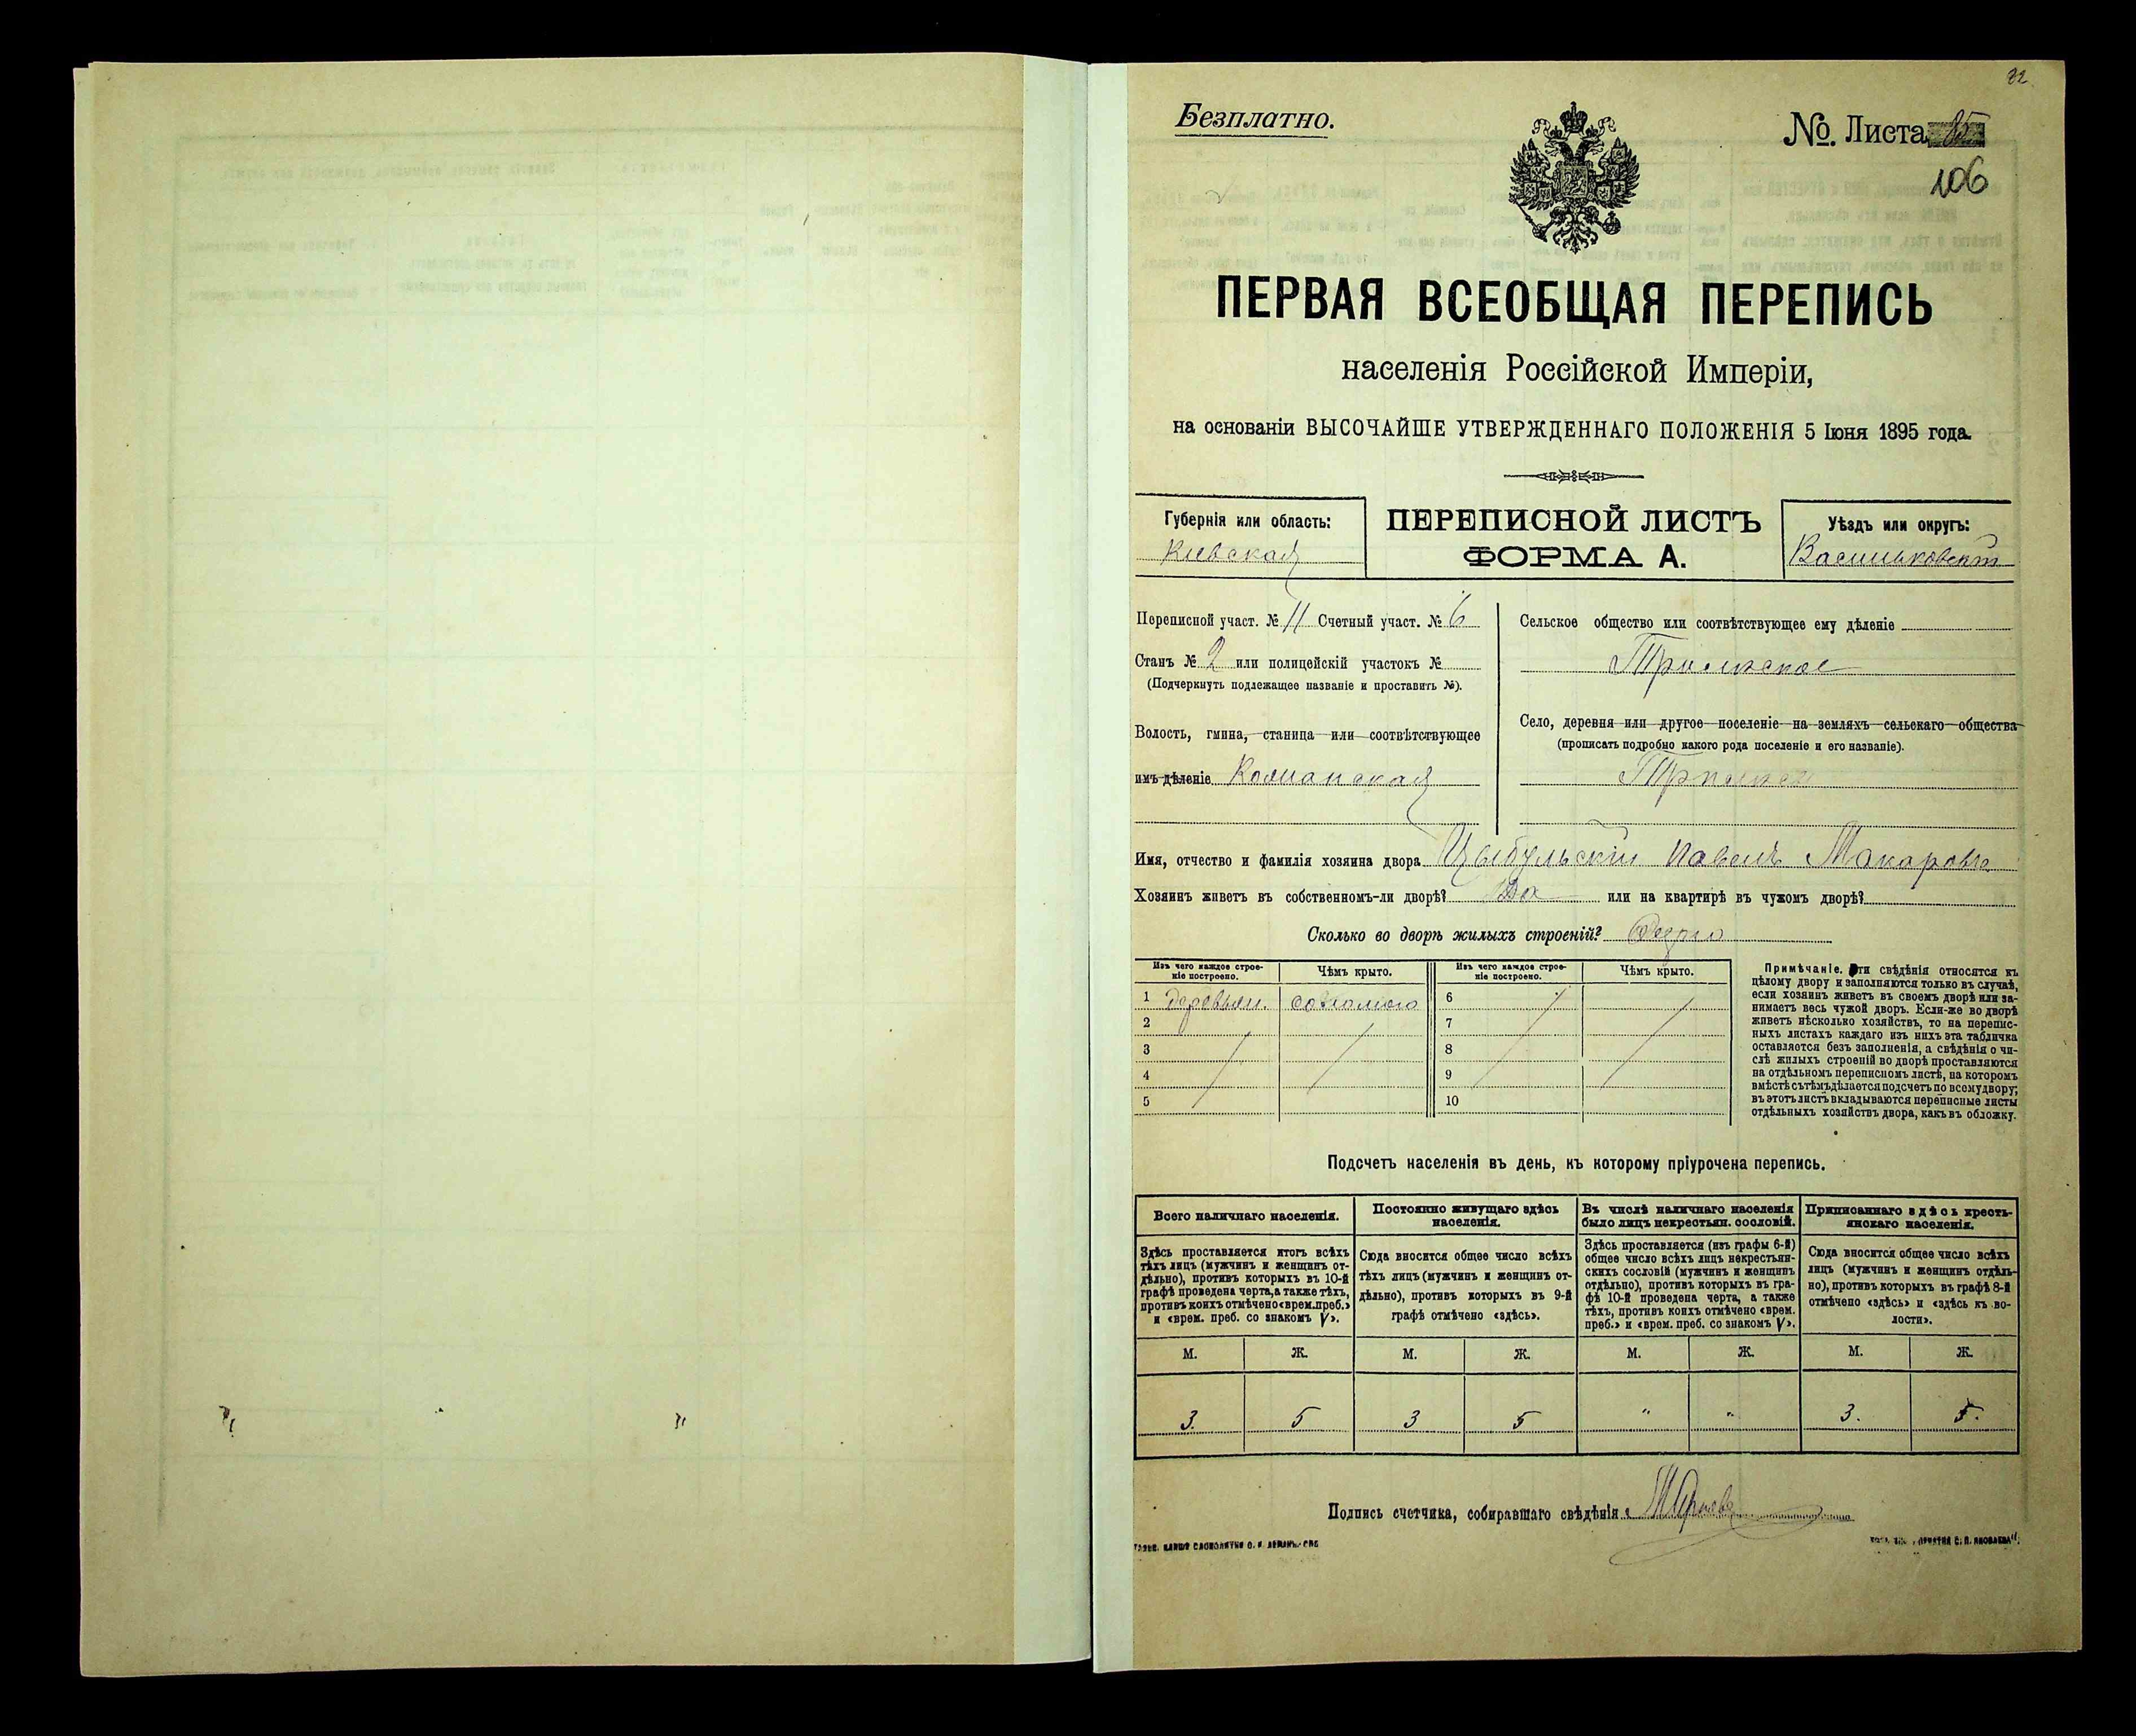 82
Безплатно.
№. Листа 85
106
ПЕРВАЯ ВСЕОБЩАЯ ПЕРЕПИСЬ
населенія Россійской Имперіи,
на основаніи ВЫСОЧАЙШЕ УТВЕРЖДЕННАГО ПОЛОЖЕНІЯ 5 Іюня 1895 года.
Губернія или область:
Кіевская
ПЕРЕПИСНОЙ ЛИСТЪ
ФОРМА А.
Уѣздъ или округъ:
Васильковскій
Переписной участ. № 11 Счетный участ. № 6
Станъ № 2 или полицейскій участокъ №
(Подчеркнуть подлежащее названіе и проставить №).
Волость, гмина, станица или соотвѣтствующее
имъ дѣленіе
Сельское общество или соотвѣтствующее ему дѣленіе
Трилѣсское
Село, деревня или другое поселеніе на земляхъ сельскаго общества
(прописать подробно какого рода поселеніе и его названіе).
Имя, отчество и фамилія хозяина двора Цыбульскій Павелъ Макаровъ
Хозяинъ живетъ въ собственномъ-ли дворѣ? Да или на квартирѣ въ чужомъ дворѣ?
Сколько во дворѣ жилыхъ строеній? Одно
Изъ чего каждое строе-
ніе построено.
Чѣмъ крыто.
Изъ чего каждое строе-
ніе построено.
Чѣмъ крыто.
1 деревян. соломою 6
2 7
3 8
4 9
5 10
Примѣчаніе. Эти свѣдѣнія относятся къ
цѣлому двору и заполняются только въ случаѣ,
если хозяинъ живетъ въ своемъ дворѣ или за-
нимаетъ весь чужой дворъ. Если-же во дворѣ
живетъ нѣсколько хозяйствъ, то на перепис-
ныхъ листахъ каждаго изъ нихъ эта табличка
оставляется безъ заполненія, а свѣдѣнія о чи-
слѣ жилыхъ строеній во дворѣ проставляются
на отдѣльномъ переписномъ листѣ, на которомъ
вмѣстѣ съ тѣмъ дѣлается подсчетъ по всему двору;
въ этотъ листъ вкладываются переписные листы
отдѣльныхъ хозяйствъ двора, какъ въ обложку.
Подсчетъ населенія въ день, къ которому пріурочена перепись.
Всего наличнаго населенія.
Постоянно живущаго здѣсь
населенія.
Въ числѣ наличнаго населенія
было лицъ некрестьян. сословій.
Приписаннаго здѣсь кресть-
янскаго населенія.
Здѣсь проставляется итогъ всѣхъ
тѣхъ лицъ (мужчинъ и женщинъ от-
дѣльно), противъ которыхъ въ 10-й
графѣ проведена черта, а также тѣхъ,
противъ коихъ отмѣчено «врем. преб.»
и «врем. преб. со знакомъ V».
Сюда вносится общее число всѣхъ
тѣхъ лицъ (мужчинъ и женщинъ от-
дѣльно), противъ которыхъ въ 9-й
графѣ отмѣчено «здѣсь».
Здѣсь проставляется (изъ графы 6-й)
общее число всѣхъ лицъ некрестьян-
скихъ сословій (мужчинъ и женщинъ
отдѣльно), противъ которыхъ въ гра-
фѣ 10-й проведена черта, а также
тѣхъ, противъ коихъ отмѣчено «врем.
преб.» и «врем. преб. со знакомъ V».
Сюда вносится общее число всѣхъ
лицъ (мужчинъ и женщинъ отдѣль-
но), противъ которыхъ въ графѣ 8-й
отмѣчено «здѣсь» и «здѣсь къ во-
лости».
М. Ж. М. Ж. М. Ж. М. Ж.
3. 5 3 5 " " 3. 5.
Подпись счетчика, собиравшаго свѣдѣнія: